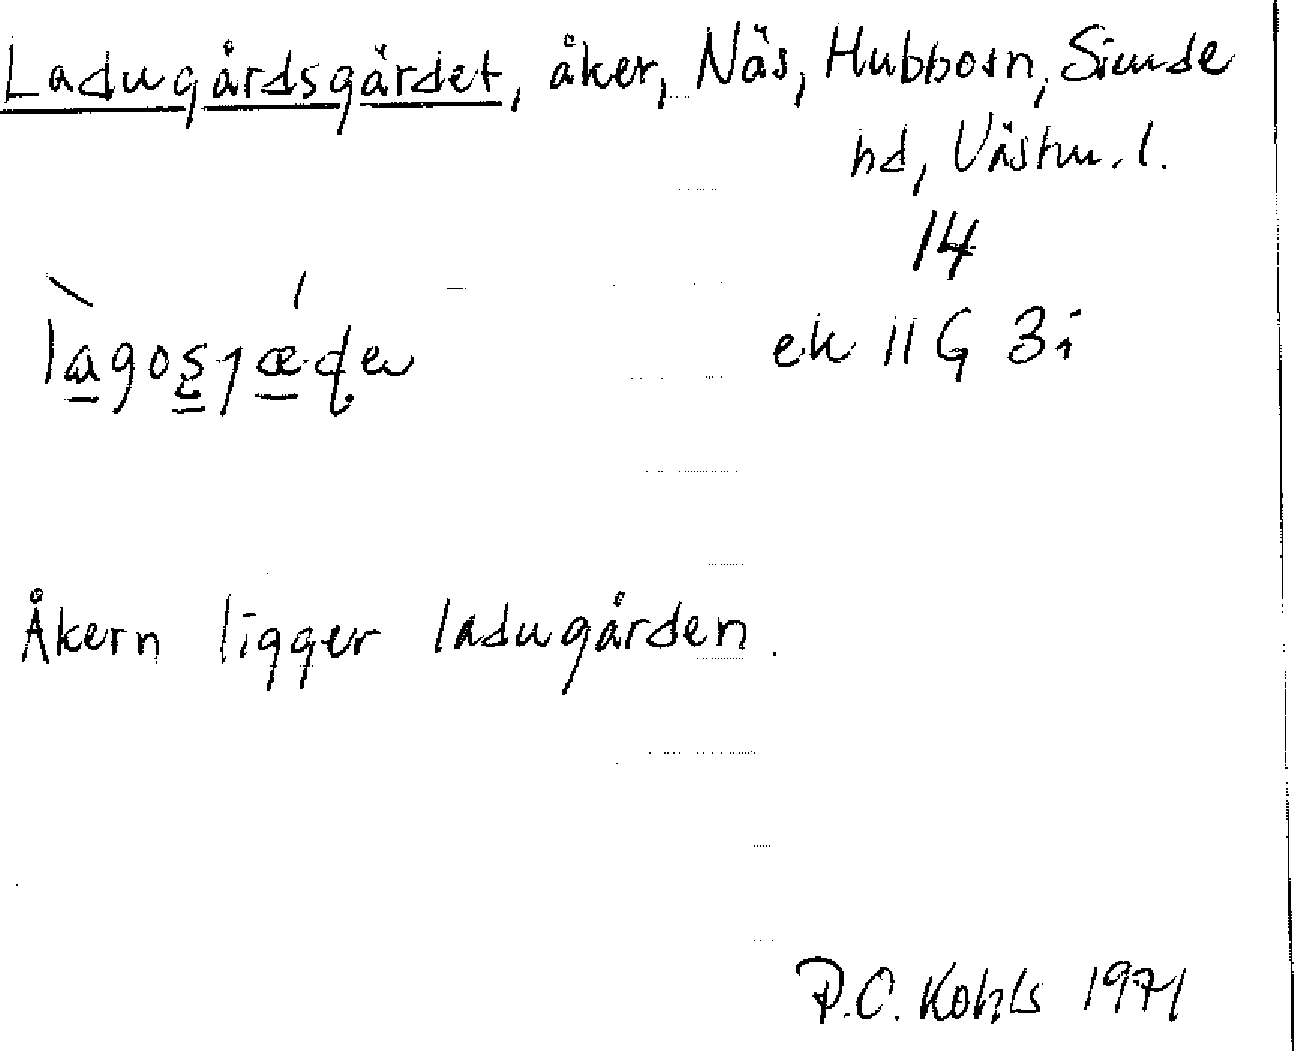 Ladugårdsgärdet, åker, Näs, Hubbosn, Siende
hd, Västm. l.
14
ek 11 G 3i
Åkern ligger ladugården.
P.C. Kohls 1971